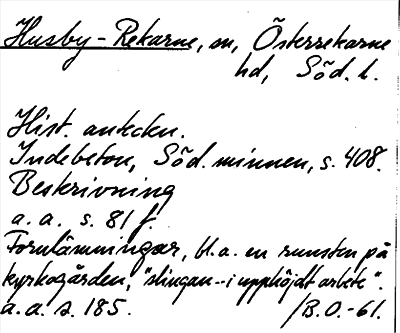 Husby-Rekarne, sn, Österrekarne
hd, Söd. l.
Hist. anteckn.
Indebetou, Söd. minnen, s. 408.
Beskrivning
a. a. s. 81 f.
Fornlämningar, bl.a. en runsten på
kyrkogården, "slingan--i upphöjdt arbete".
a. a. s. 185.
/B.O.-61.